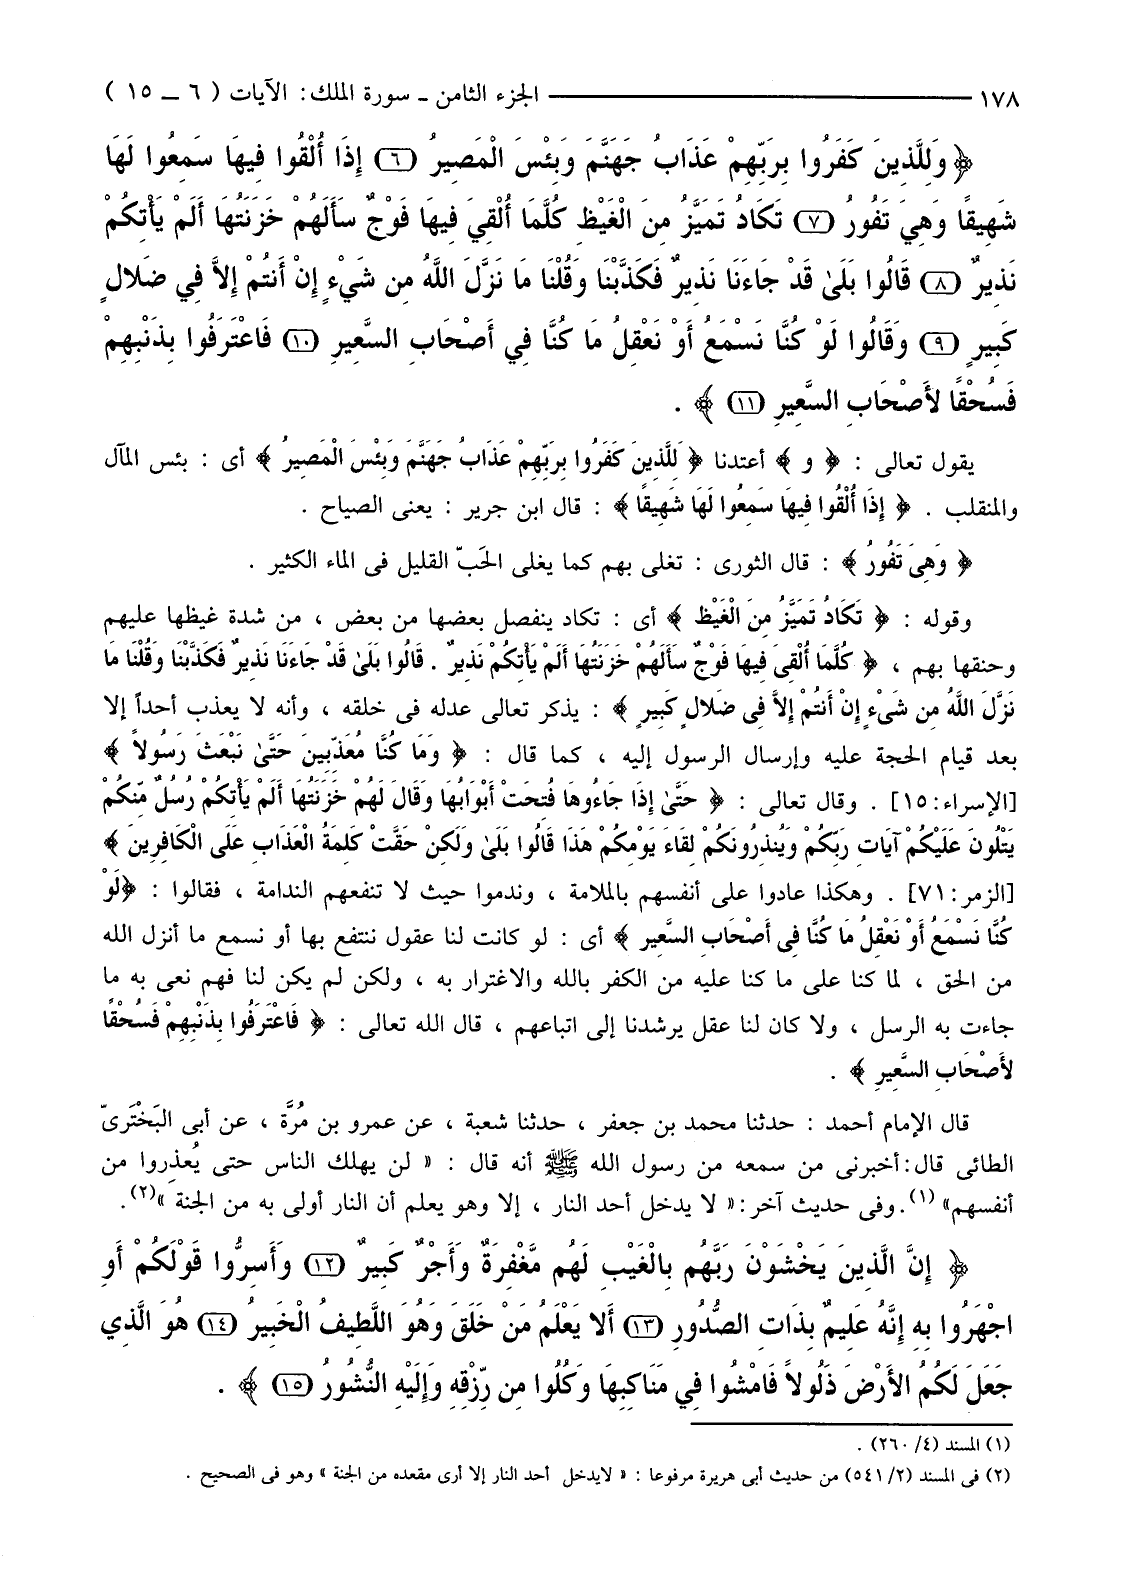 ١٧٨ ـــــــــــــــ الجزء الثامن ـ سورة الملك: الآيات ( ٦ ــ ١٥ )
﴿ وَلِلَّذِينَ كَفَرُوا بِرَبِّهِمْ عَذَابُ جَهَنَّمَ وَبِئْسَ الْمَصِيرُ (٦) إِذَا أُلْقُوا فِيهَا سَمِعُوا لَهَا
شَهِيقًا وَهِيَ تَفُورُ (٧) تَكَادُ تَمَيَّزُ مِنَ الْغَيْظِ كُلَّمَا أُلْقِيَ فِيهَا فَوْجٌ سَأَلَهُمْ خَزَنَتُهَا أَلَمْ يَأْتِكُمْ
نَذِيرٌ (٨) قَالُوا بَلَىٰ قَدْ جَاءَنَا نَذِيرٌ فَكَذَّبْنَا وَقُلْنَا مَا نَزَّلَ اللَّهُ مِن شَيْءٍ إِنْ أَنتُمْ إِلاَّ فِي ضَلالٍ
كَبِيرٍ (٩) وَقَالُوا لَوْ كُنَّا نَسْمَعُ أَوْ نَعْقِلُ مَا كُنَّا فِي أَصْحَابِ السَّعِيرِ (١٠) فَاعْتَرَفُوا بِذَنْبِهِمْ
فَسُحْقًا لأَصْحَابِ السَّعِيرِ (١١) ﴾ .
يقول تعالى : ﴿ و ﴾ أعتدنا ﴿ لِلَّذِينَ كَفَرُوا بِرَبِّهِمْ عَذَابُ جَهَنَّمَ وَبِئْسَ الْمَصِيرُ ﴾ أى : بئس المآل
والمنقلب . ﴿ إِذَا أُلْقُوا فِيهَا سَمِعُوا لَهَا شَهِيقًا ﴾ : قال ابن جرير : يعنى الصياح .
﴿ وَهِيَ تَفُورُ ﴾ : قال الثورى : تغلى بهم كما يغلى الحَبّ القليل فى الماء الكثير .
وقوله : ﴿ تَكَادُ تَمَيَّزُ مِنَ الْغَيْظِ ﴾ أى : تكاد ينفصل بعضها من بعض ، من شدة غيظها عليهم
وحنقها بهم ، ﴿ كُلَّمَا أُلْقِيَ فِيهَا فَوْجٌ سَأَلَهُمْ خَزَنَتُهَا أَلَمْ يَأْتِكُمْ نَذِيرٌ . قَالُوا بَلَىٰ قَدْ جَاءَنَا نَذِيرٌ فَكَذَّبْنَا وَقُلْنَا مَا
نَزَّلَ اللَّهُ مِن شَيْءٍ إِنْ أَنتُمْ إِلاَّ فِي ضَلالٍ كَبِيرٍ ﴾ : يذكر تعالى عدله فى خلقه ، وأنه لا يعذب أحداً إلا
بعد قيام الحجة عليه وإرسال الرسول إليه ، كما قال : ﴿ وَمَا كُنَّا مُعَذِّبِينَ حَتَّىٰ نَبْعَثَ رَسُولاً ﴾
[الإسراء: ١٥] . وقال تعالى : ﴿ حَتَّىٰ إِذَا جَاءُوهَا فُتِحَتْ أَبْوَابُهَا وَقَالَ لَهُمْ خَزَنَتُهَا أَلَمْ يَأْتِكُمْ رُسُلٌ مِّنكُمْ
يَتْلُونَ عَلَيْكُمْ آيَاتِ رَبِّكُمْ وَيُنذِرُونَكُمْ لِقَاءَ يَوْمِكُمْ هَذَا قَالُوا بَلَىٰ وَلَكِنْ حَقَّتْ كَلِمَةُ الْعَذَابِ عَلَى الْكَافِرِينَ ﴾
[الزمر: ٧١] . وهكذا عادوا على أنفسهم بالملامة ، وندموا حيث لا تنفعهم الندامة ، فقالوا : ﴿لَوْ
كُنَّا نَسْمَعُ أَوْ نَعْقِلُ مَا كُنَّا فِي أَصْحَابِ السَّعِيرِ ﴾ أى : لو كانت لنا عقول ننتفع بها أو نسمع ما أنزل الله
من الحق ، لما كنا على ما كنا عليه من الكفر بالله والاغترار به ، ولكن لم يكن لنا فهم نعى به ما
جاءت به الرسل ، ولا كان لنا عقل يرشدنا إلى اتباعهم ، قال الله تعالى : ﴿ فَاعْتَرَفُوا بِذَنْبِهِمْ فَسُحْقًا
لأَصْحَابِ السَّعِيرِ ﴾ .
قال الإمام أحمد : حدثنا محمد بن جعفر ، حدثنا شعبة ، عن عمرو بن مُرَّة ، عن أبى البَخْتَرىّ
الطائى قال: أخبرنى من سمعه من رسول الله ﷺ أنه قال : « لن يهلك الناس حتى يُعذِروا من
أنفسهم» (١). وفى حديث آخر: « لا يدخل أحد النار ، إلا وهو يعلم أن النار أولى به من الجنة »(٢).
﴿ إِنَّ الَّذِينَ يَخْشَوْنَ رَبَّهُم بِالْغَيْبِ لَهُم مَّغْفِرَةٌ وَأَجْرٌ كَبِيرٌ (١٢) وَأَسِرُّوا قَوْلَكُمْ أَوِ
اجْهَرُوا بِهِ إِنَّهُ عَلِيمٌ بِذَاتِ الصُّدُورِ (١٣) أَلا يَعْلَمُ مَنْ خَلَقَ وَهُوَ اللَّطِيفُ الْخَبِيرُ (١٤) هُوَ الَّذِي
جَعَلَ لَكُمُ الأَرْضَ ذَلُولاً فَامْشُوا فِي مَنَاكِبِهَا وَكُلُوا مِن رِّزْقِهِ وَإِلَيْهِ النُّشُورُ (١٥) ﴾ .
(١) المسند (٤/ ٢٦٠) .
(٢) فى المسند (٢/ ٥٤١) من حديث أبى هريرة مرفوعا : « لايدخل أحد النار إلا أرى مقعده من الجنة » وهو فى الصحيح .